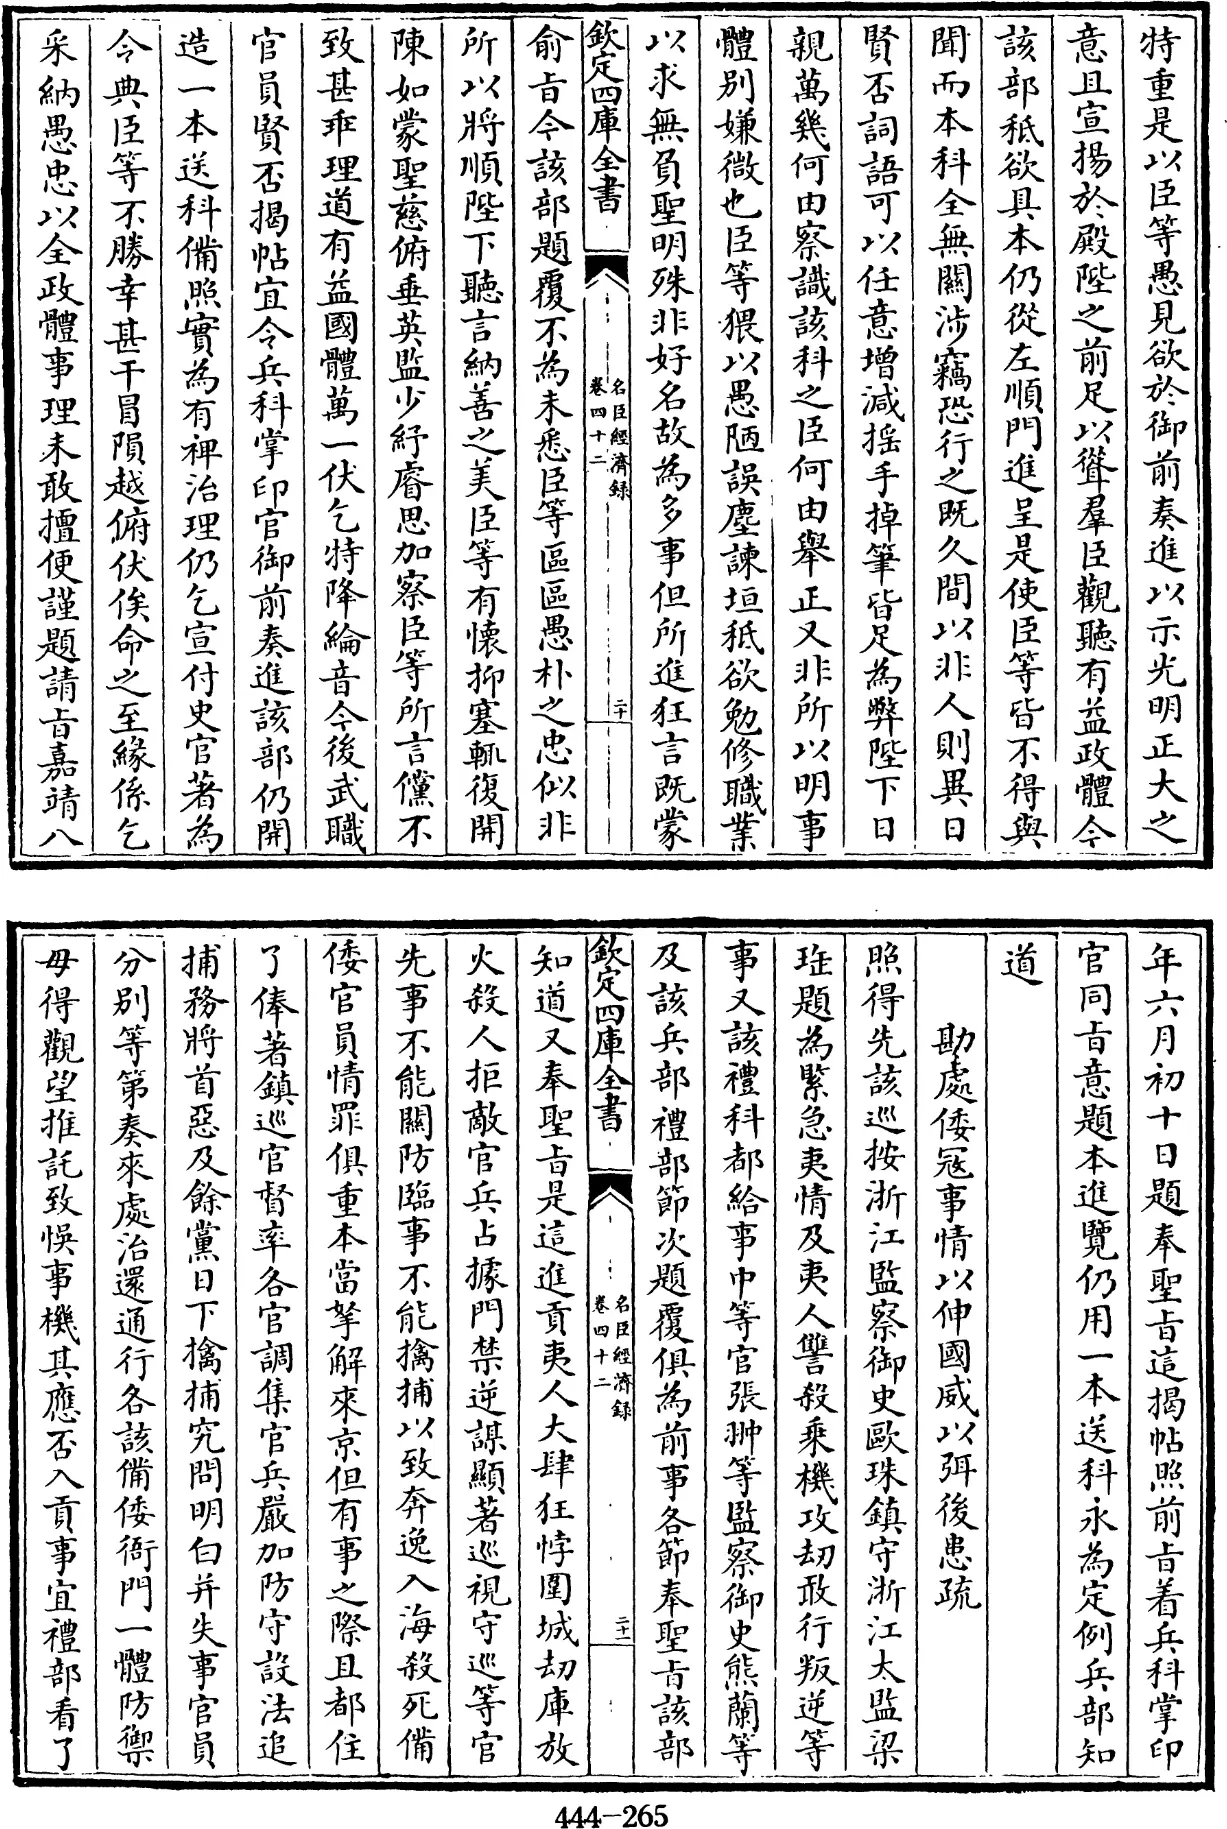 特重是以臣等愚見欲於御前奏進以示光明正大之
意且宣揚於殿陛之前足以聳羣臣觀聽有益政體今
該部秪欲具本仍從左順門進呈是使臣等皆不得與
聞而本科全無關涉竊恐行之既久間以非人則異日
賢否詞語可以任意增減摇手掉筆皆足為弊陛下日
親萬幾何由察識該科之臣何由舉正又非所以明事
體别嫌微也臣等猥以愚陋誤塵諫垣秪欲勉修職業
以求無負聖明殊非好名故為多事但所進狂言既蒙
欽定四庫全書
名臣經濟録
卷四十二
二十
俞旨令該部題覆不為未悉臣等區區愚朴之忠似非
所以將順陛下聽言納善之美臣等有懷抑塞輒復開
陳如蒙聖慈俯垂英監少紓睿思加察臣等所言儻不
致甚乖理道有益國體萬一伏乞特降綸音今後武職
官員賢否揭帖宜令兵科掌印官御前奏進該部仍開
造一本送科備照實為有禆治理仍乞宣付史官著為
令典臣等不勝幸甚干冒隕越俯伏俟命之至緣係乞
采納愚忠以全政體事理未敢擅便謹題請旨嘉靖八
年六月初十日題奉聖旨這揭帖照前旨着兵科掌印
官同旨意題本進覽仍用一本送科永為定例兵部知
道
勘處倭冦事情以伸國威以弭後患疏
照得先該巡按浙江監察御史歐珠鎮守浙江太監梁
珤題為緊急夷情及夷人讐殺乗機攻刼敢行叛逆等
事又該禮科都給事中等官張翀等監察御史熊蘭等
及該兵部禮部節次題覆俱為前事各節奉聖旨該部
欽定四庫全書
名臣經濟録
卷四十二
二十一
知道又奉聖旨是這進貢夷人大肆狂悖圍城刼庫放
火殺人拒敵官兵占據門禁逆謀顯著巡視守巡等官
先事不能關防臨事不能擒捕以致奔逸入海殺死備
倭官員情罪俱重本當拏解來京但有事之際且都住
了俸著鎮巡官督率各官調集官兵嚴加防守設法追
捕務將首惡及餘黨日下擒捕究問明白并失事官員
分别等第奏來處治還通行各該備倭衙門一體防禦
毋得觀望推託致悞事機其應否入貢事宜禮部看了
444-265